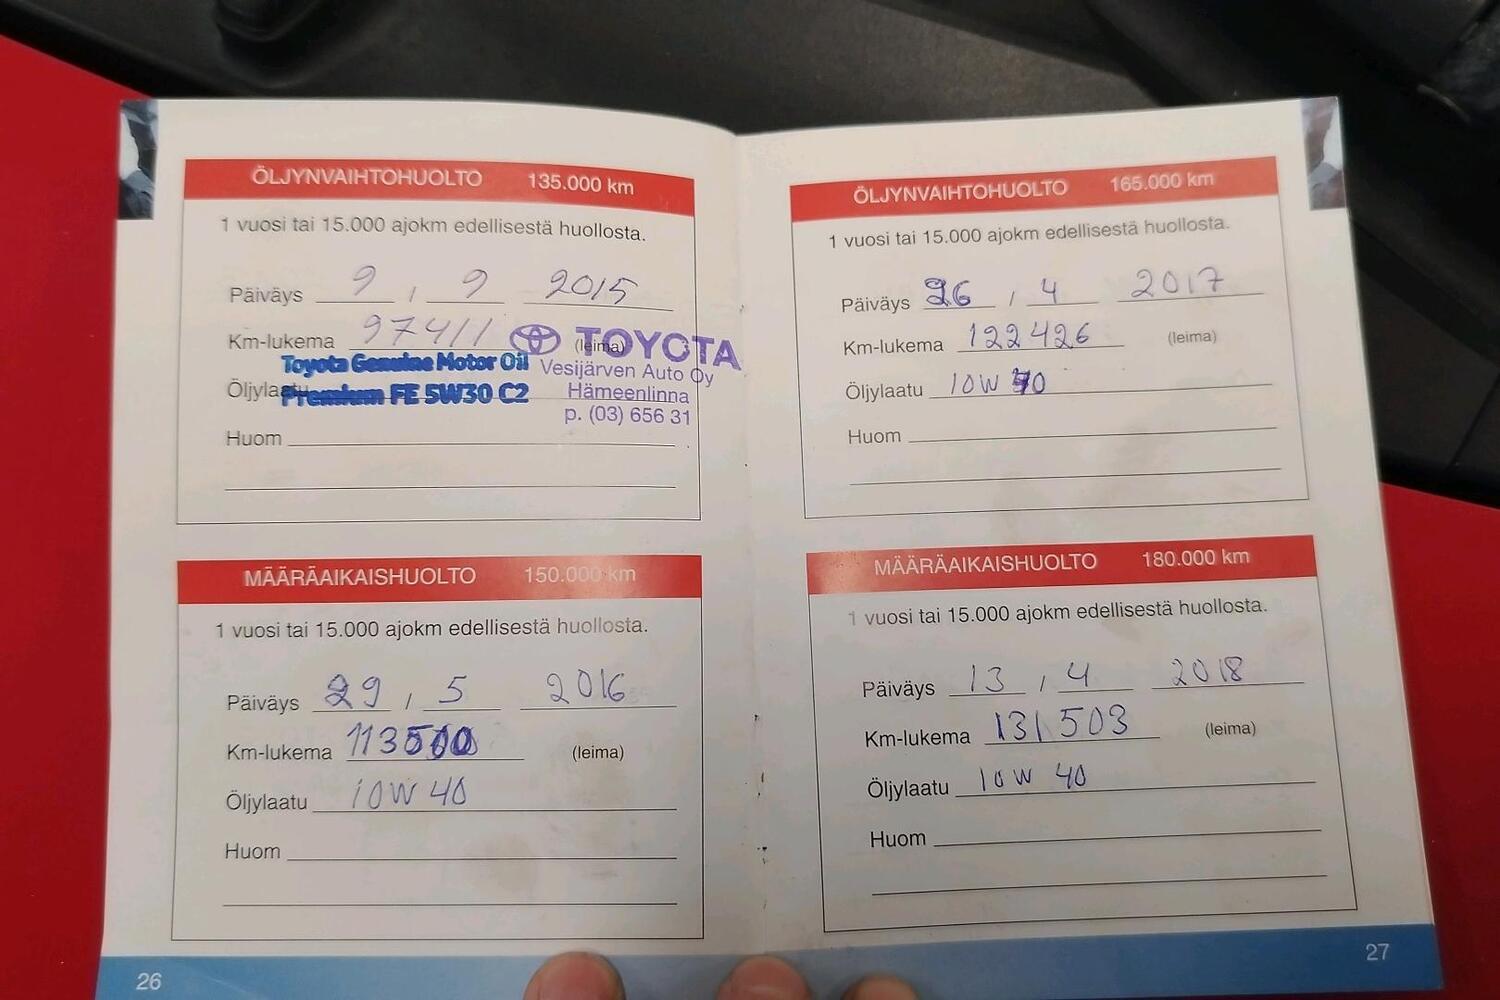 ÖLJYNVAIHTOHUOLTO 135.000 km
1 vuosi tai 15.000 ajokm edellisestä huollosta.
Päiväys 9 / 9 2015
Km-lukema 97411 (leima)
TOYOTA
Vesijärven Auto Oy
Hämeenlinna
p. (03) 656 31
Toyota Genuine Motor Oil
Öljylaatu Premium FE 5W30 C2
Huom
MÄÄRÄAIKAISHUOLTO 150.000 km
1 vuosi tai 15.000 ajokm edellisestä huollosta.
Päiväys 29 / 5 2016
Km-lukema 113500 (leima)
Öljylaatu 10W 40
Huom
26
ÖLJYNVAIHTOHUOLTO 165.000 km
1 vuosi tai 15.000 ajokm edellisestä huollosta.
Päiväys 26 / 4 2017
Km-lukema 122426 (leima)
Öljylaatu 10W 40
Huom
MÄÄRÄAIKAISHUOLTO 180.000 km
1 vuosi tai 15.000 ajokm edellisestä huollosta.
Päiväys 13 / 4 2018
Km-lukema 131503 (leima)
Öljylaatu 10W 40
Huom
27